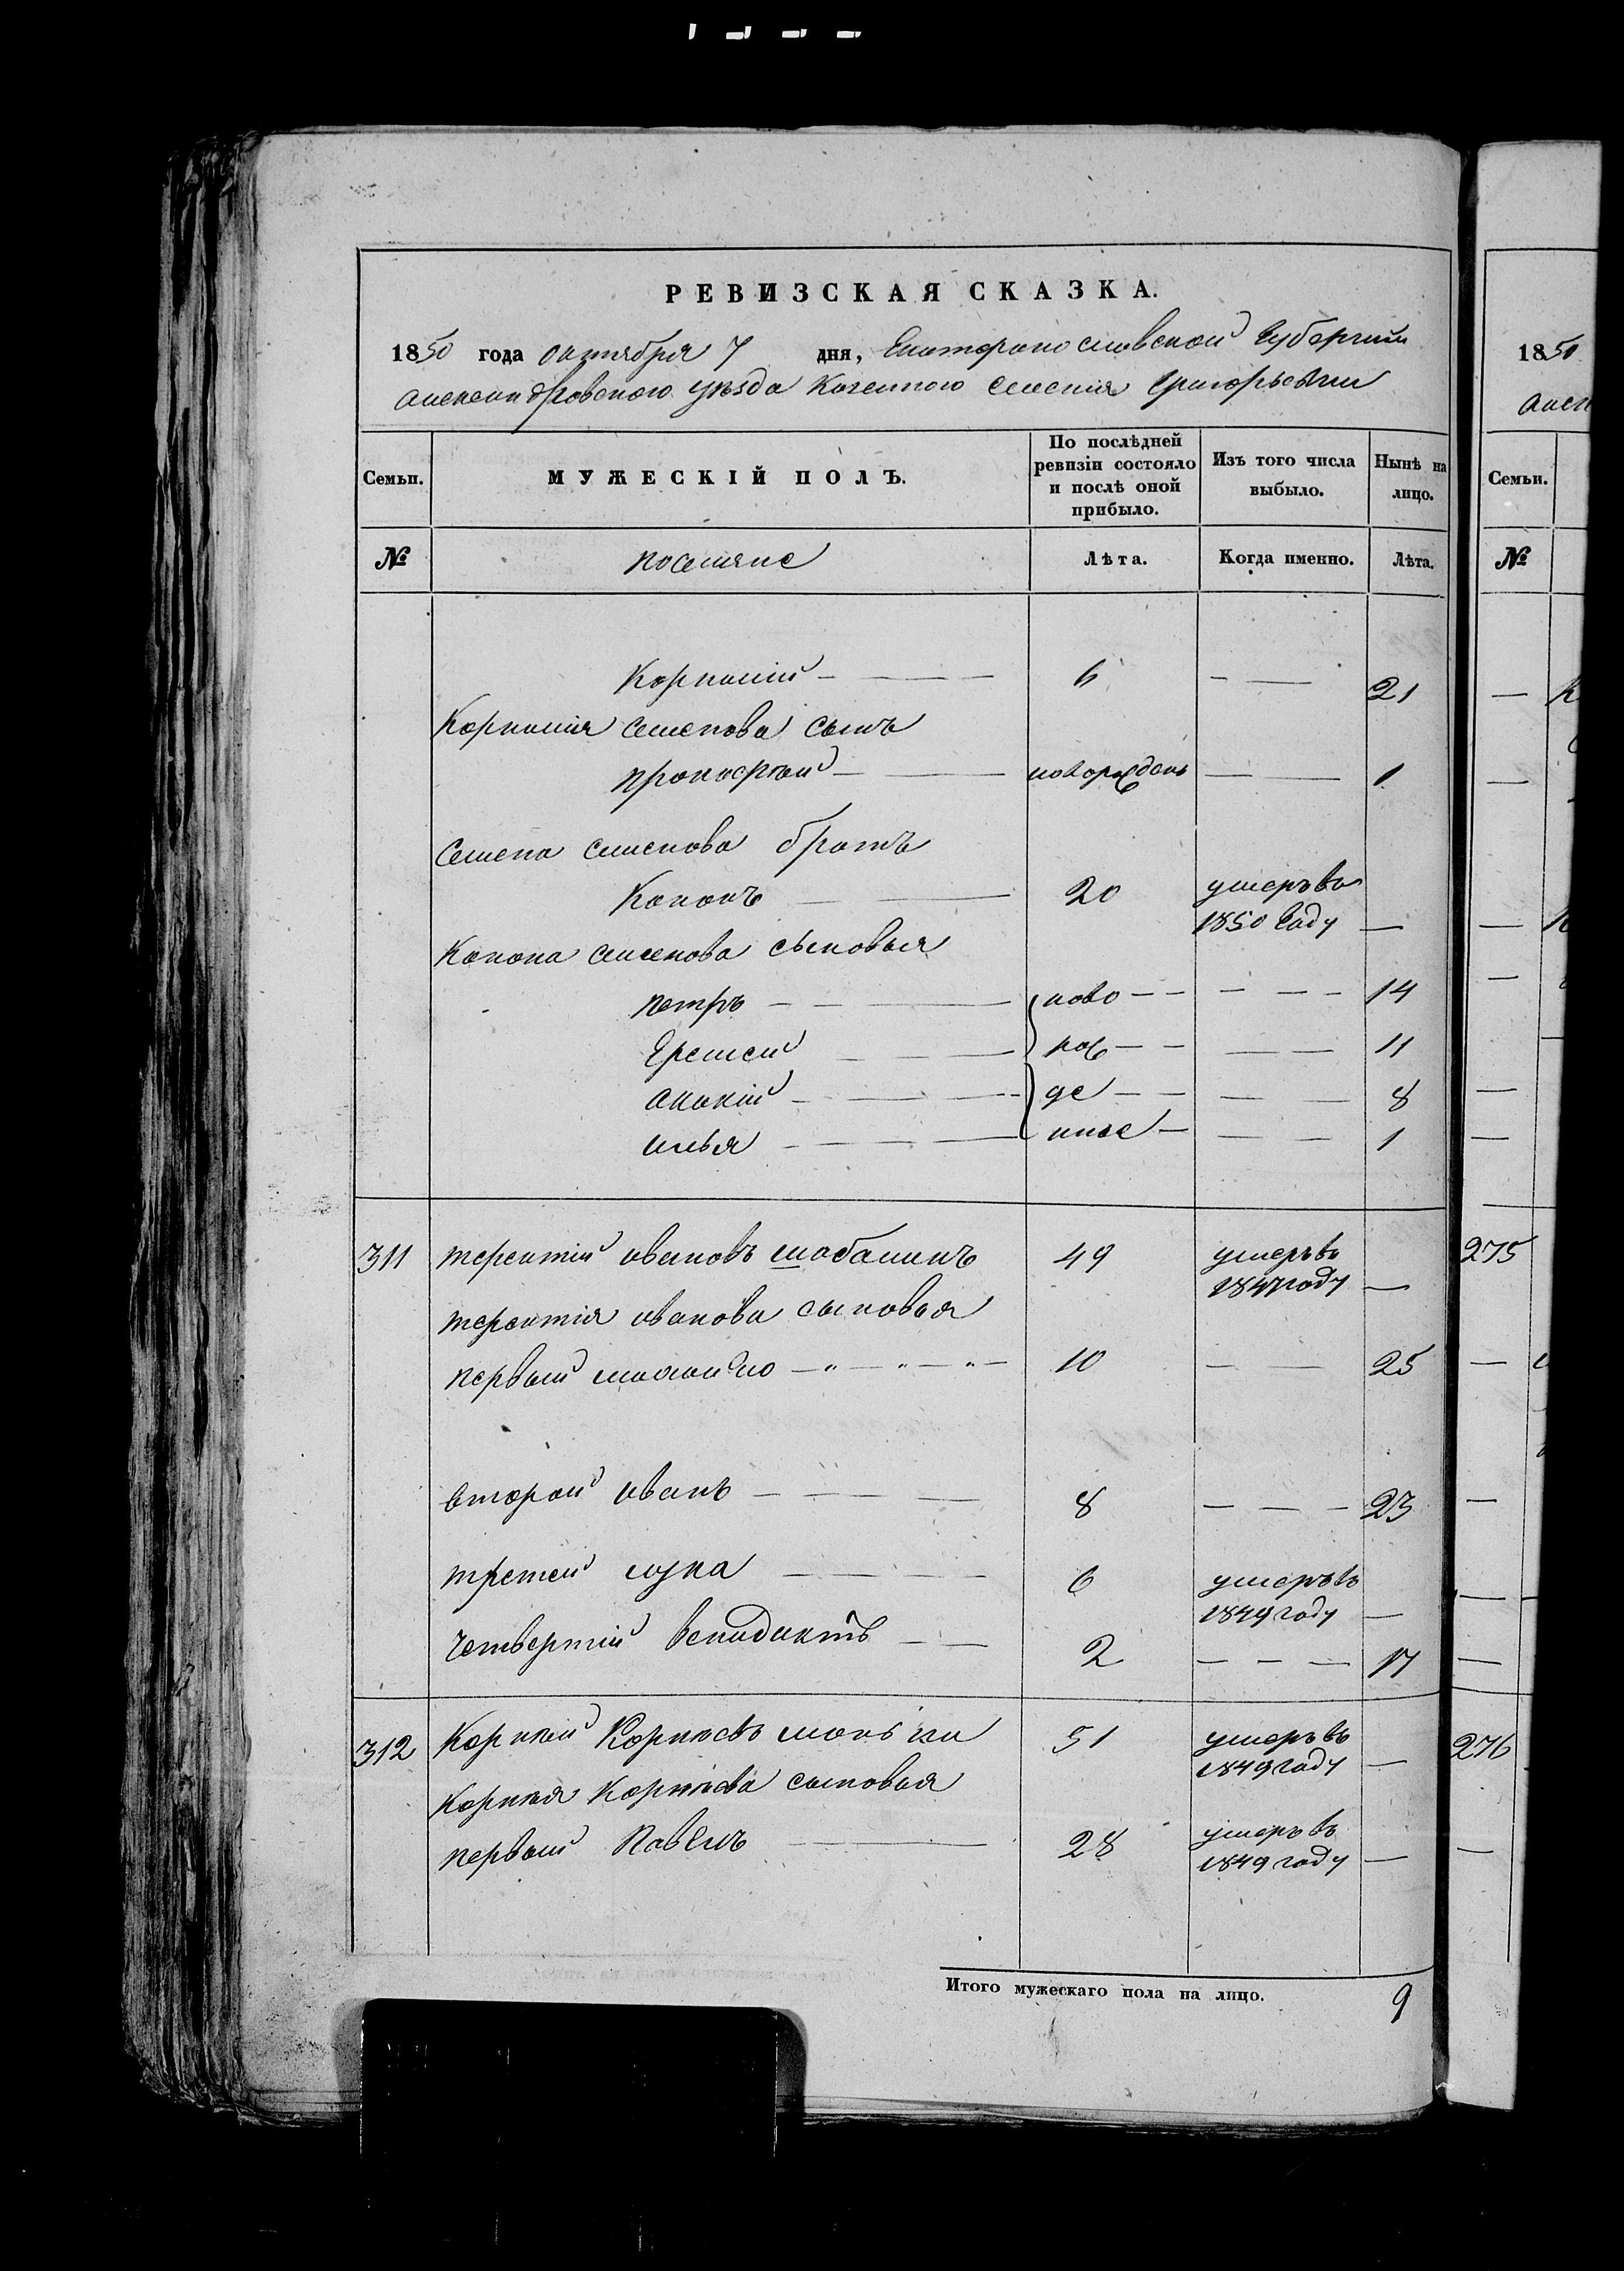 РЕВИЗСКАЯ СКАЗКА.
1850 года октября 7 дня, Екатеринославской Губернии
александровского уѣзда Казенного селения Григорьевки
Семьи. МУЖЕСКІЙ ПОЛЪ. По послѣдней ревизіи состояло и послѣ оной прибыло. Изъ того числа выбыло. Нынѣ на лицо.
№ поселяне Лѣта. Когда именно. Лѣта.
Корнилий — 6 — 21
Корнилия семенова сынъ
прокофий — новорожденъ — 1
Семена семенова братъ
Кононъ — 20 умеръ въ 1850 Году —
Конона семенова сыновья
петръ — ново — 14
Еремей — рож — 11
акакій — де — 8
илья — ные — 1
311 терентій ивановъ шабалинъ 49 умеръ въ 1847 году —
терентія иванова сыновья
первый 10 — 25
второй иванъ — 8 — 23
третей лука — 6 умеръ въ 1849 году —
четвертій венидиктъ — 2 — 17
312 Корней Корнѣевъ 51 умеръ въ 1849 году —
Корнея Корнѣева сыновья
первый Павелъ — 28 умеръ въ 1849 году —
Итого мужескаго пола на лицо. 9
1850
Семьи.
№
275
276